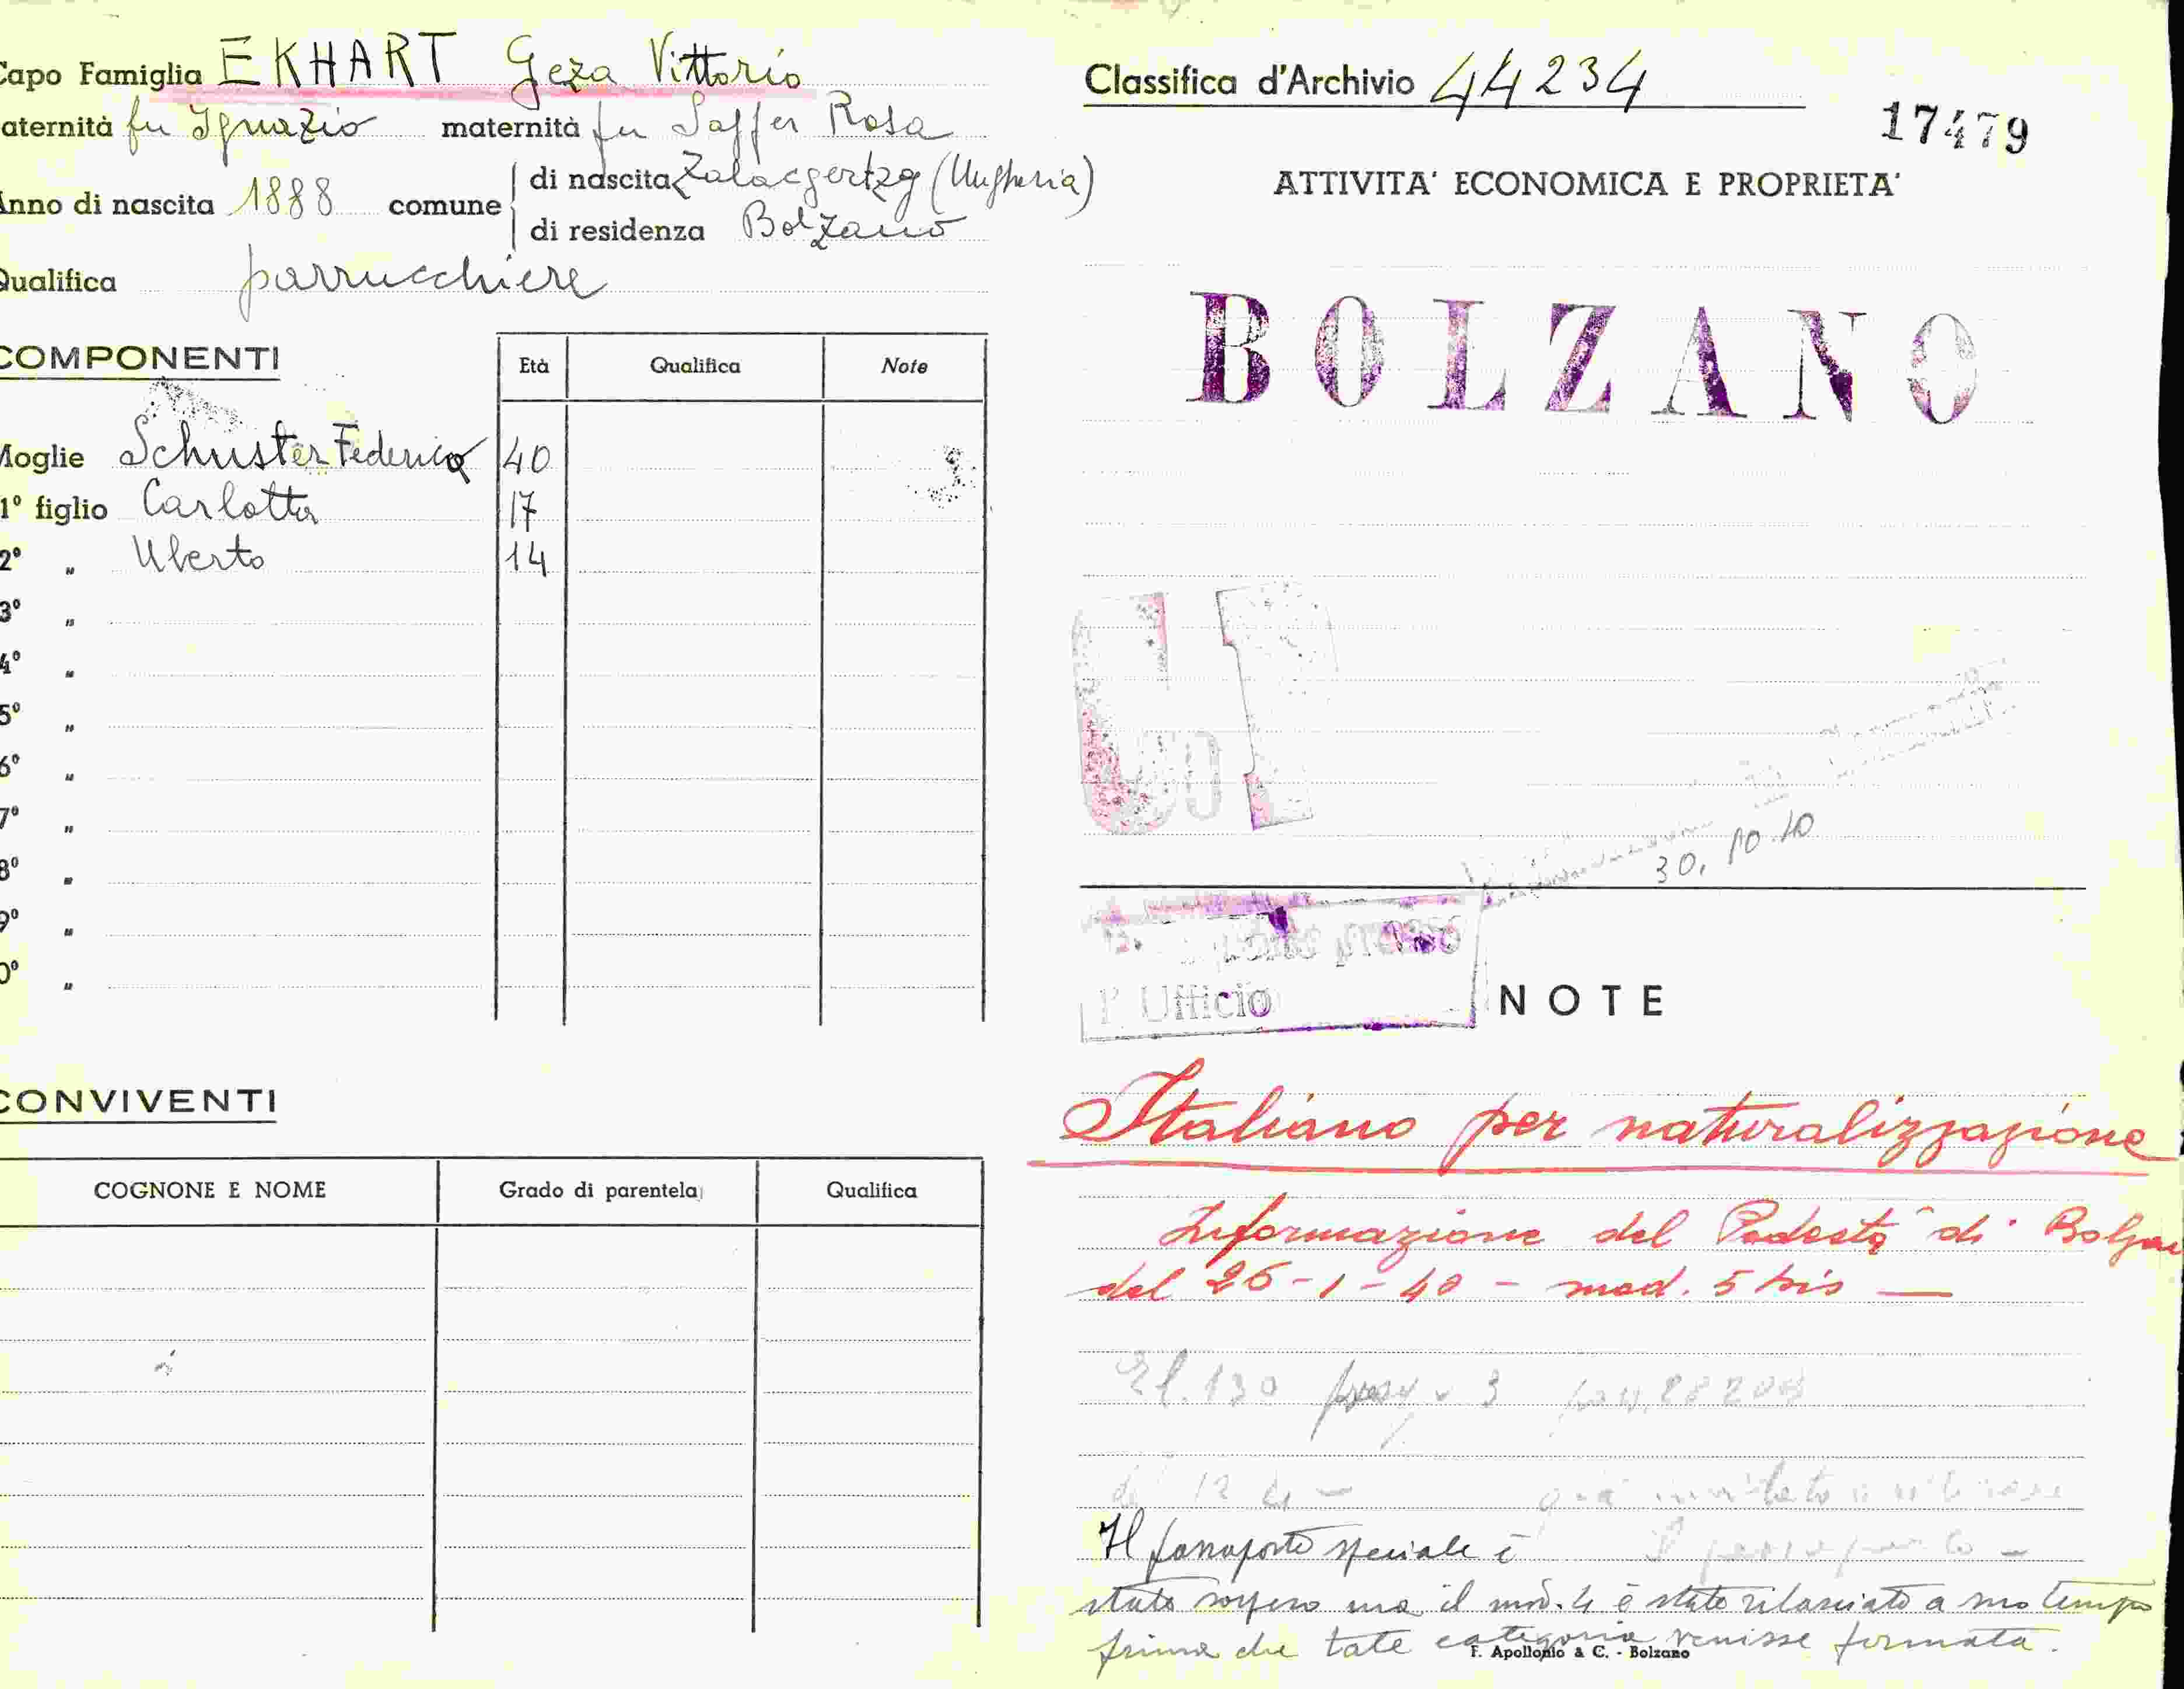 Capo Famiglia EKHART Geza Vittorio
aternità fu Ignazio maternità fu Saffer Rosa
Anno di nascita 1888 comune di nascita Zalaegertzg (Ungheria)
di residenza Bolzano
Qualifica parrucchiere
COMPONENTI Età Qualifica Note
Moglie Schuster Federica 40
1º figlio Carlotta 17
2º „ Uberto 14
3º „
4º „
5º „
6º „
7º „
8º „
9º „
0º „
CONVIVENTI
COGNONE E NOME Grado di parentela Qualifica
Classifica d'Archivio 44234
17479
ATTIVITA' ECONOMICA E PROPRIETA'
BOLZANO
30. 10. 40
presso
l'Ufficio
NOTE
Italiano per naturalizzazione
Informazione del Podestà di
del 26-1-40 - mod. 5 bis —
130 3
Il passaporto speciale è
stato sospeso ma il mod. 4 è stato rilasciato a suo tempo
prima che tale categoria venisse fermata.
F. Apollonio & C. - Bolzano